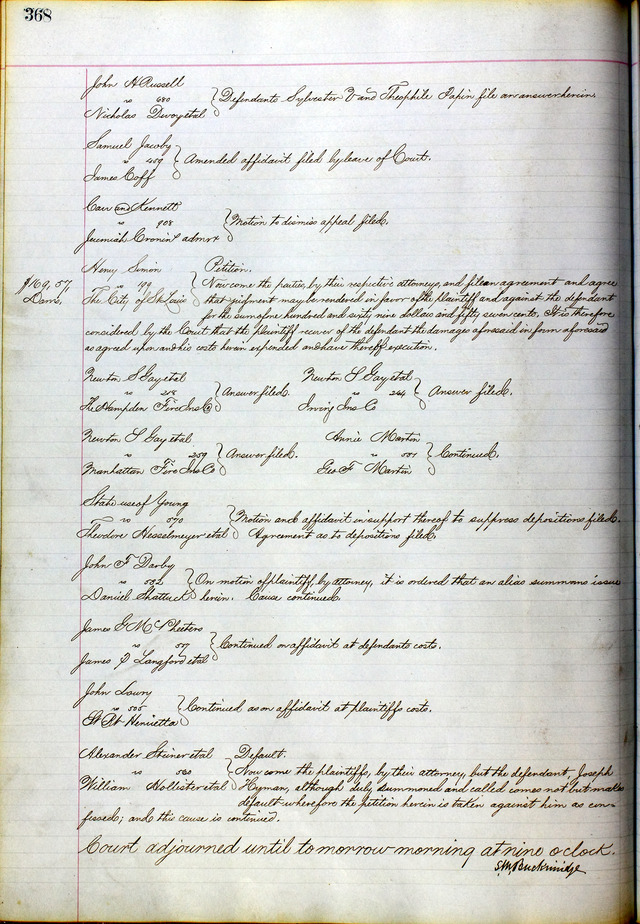 368
John H Russell
vs 680 Defendants Sylvester V and Theophile Papin file an answer herein.
Nicholas Devoy et al
Samuel Jacoby
vs 459 Amended affidavit filed by leave of Court.
James Goff
Carr and Kennett
vs 908 Motion to dismiss appeal filed.
Jeremiah Cronin admr
Henry Simon Petition.
$169,57 vs 499 Now come the parties, by their respective attorneys, and file an agreement and agree
Dam's. The City of St Louis that judgment may be rendered in favor of the plaintiff and against the defendant
for the sum of one hundred and sixty nine dollars and fifty seven cents. It is therefore
considered by the Court that the plaintiff recover of the defendant the damages aforesaid in form aforesaid
as agreed upon and his costs herein expended and have thereof execution.
Newton S Gay et al Newton S Gay et al
vs 258 Answer filed. vs 264 Answer filed.
The Hampden Fire Ins Co Irving Ins Co
Newton S Gay et al Annie Martin
vs 259 Answer filed. vs 551 Continued.
Manhattan Fire Ins Co Geo F Martin
State use of Young
vs 570 Motion and affidavit in support thereof to suppress depositions filed.
Theodore Hesselmeyer et al Agreement as to depositions filed.
John F Darby
vs 552 On motion of plaintiff, by attorney, it is ordered that an alias summons issue
Daniel Shattuck herein. Cause continued.
James G McPheeters
vs 517 Continued on affidavit at defendants costs.
James P Langford et al
John Lowry
vs 555 Continued as on affidavit at plaintiffs costs.
St Bt Henrietta
Alexander Steiner et al Default.
vs 560 Now come the plaintiffs, by their attorney, but the defendant, Joseph
William Hollister et al Hyman, although duly summoned and called comes not but makes
default wherefore the petition herein is taken against him as con-
fessed; and this cause is continued.
Court adjourned until tomorrow morning at nine o'clock.
S.M. Breckinridge